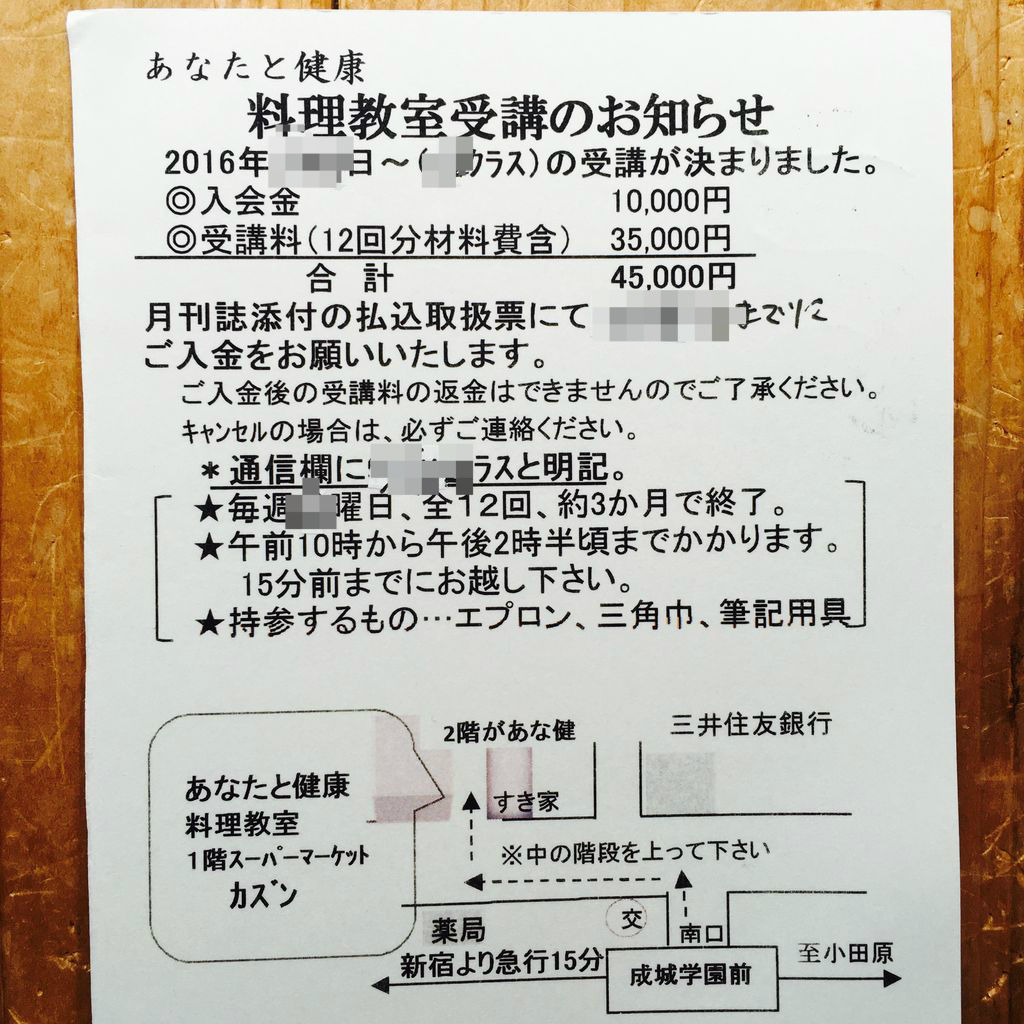 あなたと健康
料理教室受講のお知らせ
2016年 日～( クラス)の受講が決まりました。
◎入会金 10,000円
◎受講料(12回分材料費含) 35,000円
合 計 45,000円
月刊誌添付の払込取扱票にて までに
ご入金をお願いいたします。
ご入金後の受講料の返金はできませんのでご了承ください。
キャンセルの場合は、必ずご連絡ください。
*通信欄に ラスと明記。
★毎週 曜日、全12回、約3か月で終了。
★午前10時から午後2時半頃までかかります。
15分前までにお越し下さい。
★持参するもの…エプロン、三角巾、筆記用具
2階があな健
三井住友銀行
あなたと健康
料理教室
1階スーパーマーケット
カズン
すき家
※中の階段を上って下さい
薬局
交
南口
新宿より急行15分
成城学園前
至小田原